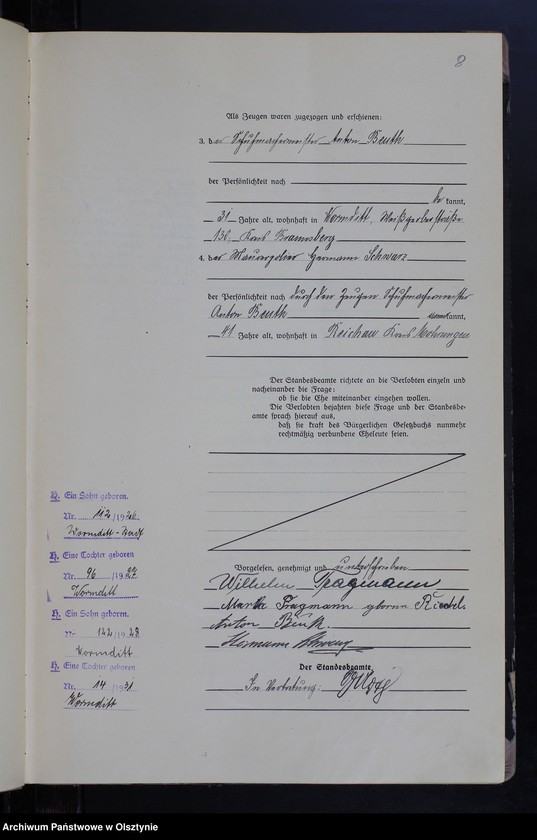 8
Als Zeugen waren zugezogen und erschienen:
3. der Schuhmachermeister Anton Beuth
der Persönlichkeit nach
bekannt,
31 Jahre alt, wohnhaft in Wormditt, Weißgerberstraße
136. Kreis Braunsberg
4. der Maurerpolier Hermann Schwarz
der Persönlichkeit nach durch den Zeugen Schuhmachermeister
Anton Beuth
kannt,
41 Jahre alt, wohnhaft in Reichau Kreis Mohrungen
Der Standesbeamte richtete an die Verlobten einzeln und
nacheinander die Frage:
ob sie die Ehe miteinander eingehen wollen.
Die Verlobten bejahten diese Frage und der Standesbe-
amte sprach hierauf aus,
daß sie kraft des Bürgerlichen Gesetzbuchs nunmehr
rechtmäßig verbundene Eheleute seien.
H. Ein Sohn geboren.
Nr. 112/1926.
Wormditt-Stadt
H. Eine Tochter geboren
Nr. 96/1927
Wormditt
H. Ein Sohn geboren.
Nr. 122/1928
Wormditt
H. Eine Tochter geboren
Nr. 14/1931
Wormditt
Vorgelesen, genehmigt und unterschrieben
Wilhelm Fragmann
Martha Fragmann geborene
Anton Beuth.
Hermann Schwarz
Der Standesbeamte
In Vertretung:
Archiwum Państwowe w Olsztynie